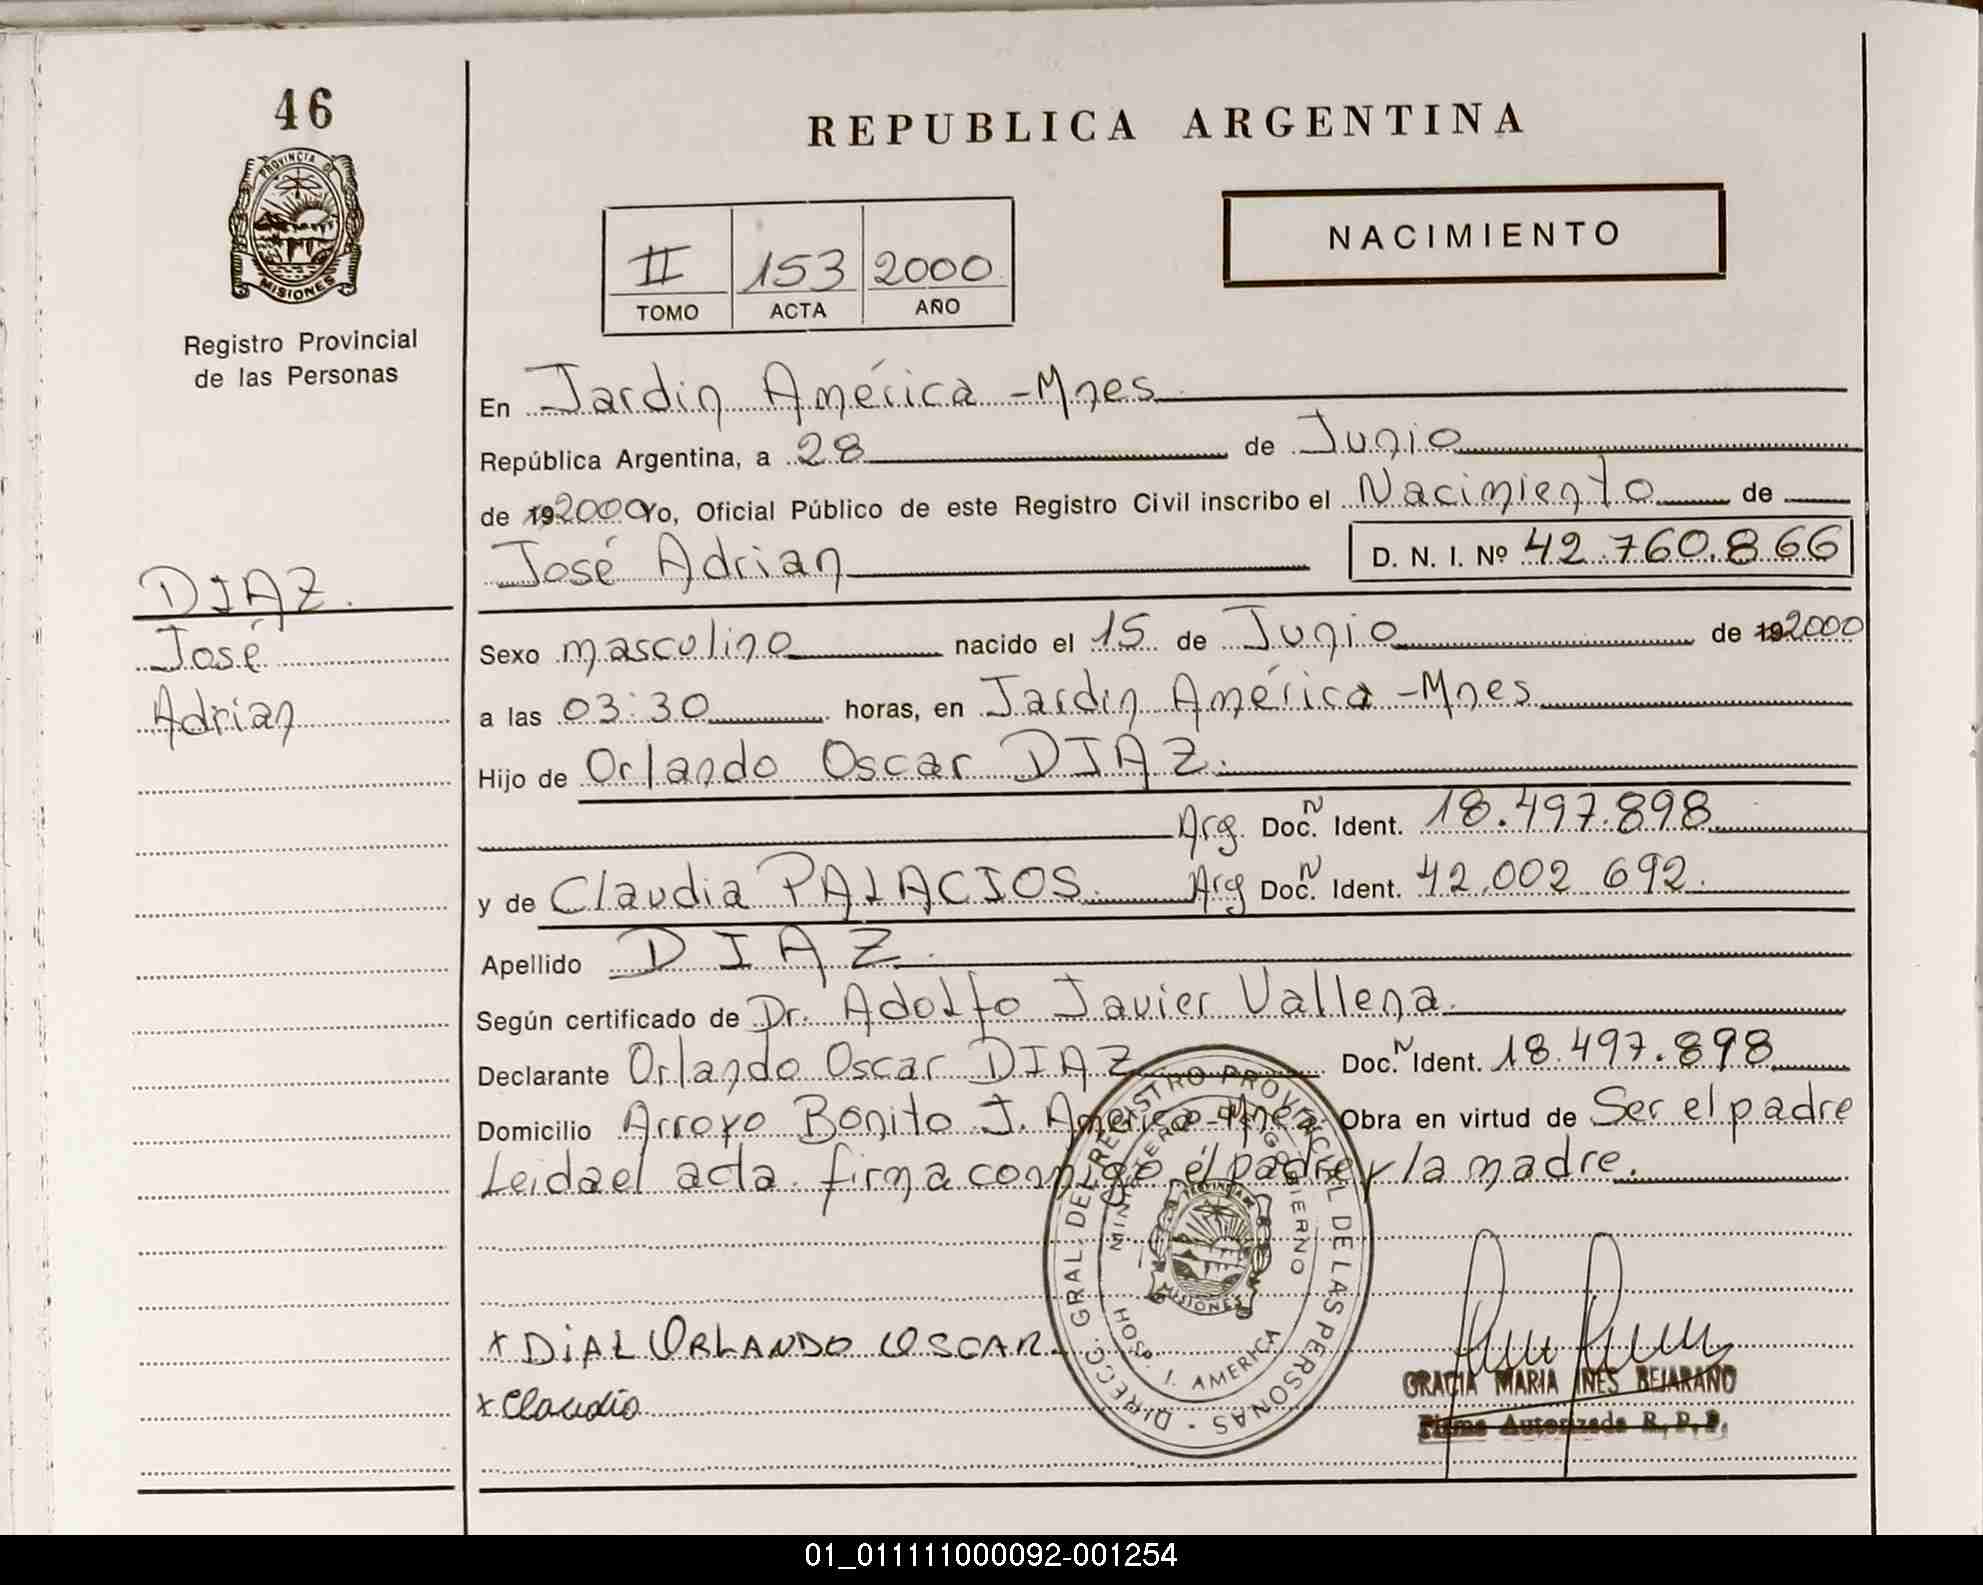 46
PROVINCIA DE
MISIONES
Registro Provincial
de las Personas
REPUBLICA ARGENTINA
II 153 2000
TOMO ACTA AÑO
NACIMIENTO
En Jardin América -Mnes
República Argentina, a 28 de Junio
de 192000 Yo, Oficial Público de este Registro Civil inscribo el Nacimiento de
José Adrian D. N. I. Nº 42.760.866
DIAZ.
José
Adrian
Sexo masculino nacido el 15 de Junio de 192000
a las 03:30 horas, en Jardin América -Mnes
Hijo de Orlando Oscar DIAZ.
Arg. Doc. N Ident. 18.497.898
y de Claudia PALACIOS. Arg Doc. N Ident. 42.002 692.
Apellido DIAZ.
Según certificado de Dr. Adolfo Javier Vallena.
Declarante Orlando Oscar DIAZ Doc. N Ident. 18.497.898
Domicilio Arroyo Bonito J. América-Mnes Obra en virtud de Ser el padre
Leida el acta firma conmigo el padre y la madre.
DIRECC. GRAL. DEL REGISTRO PROVINCIAL DE LAS PERSONAS -
MINISTERIO DE GOBIERNO
PROVINCIA DE
MISIONES
HOSP. J. AMERICA
x DiAZ ORLANDO OSCAR.
x Claudia
GRACIA MARIA INES BEJARANO
Firma Autorizada R. P. P.
01_011111000092-001254